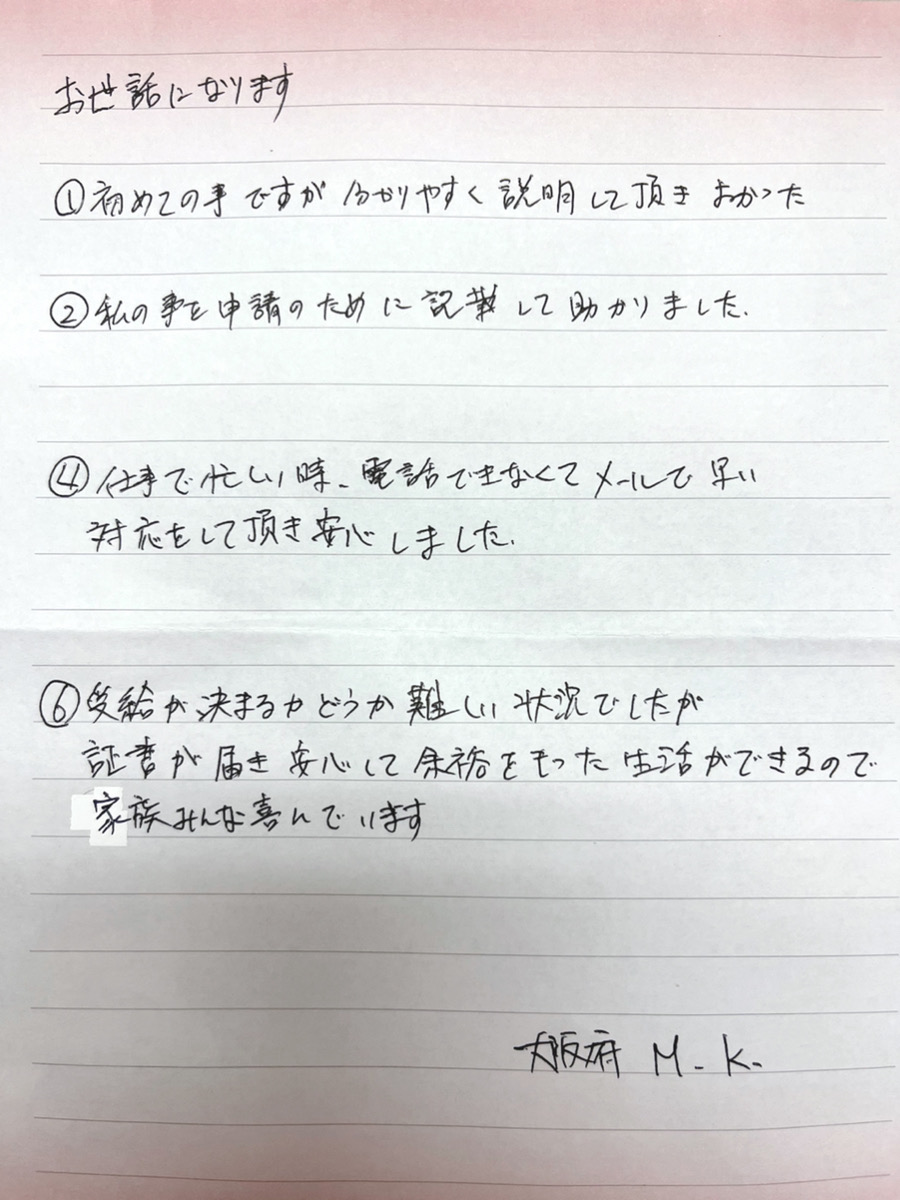 お世話になります
①初めての事ですが分かりやすく説明して頂きよかった
②私の事を申請のために記載して助かりました.
④仕事で忙しい時、電話できなくてメールで早い
対応をして頂き安心しました.
⑥受給が決まるかどうか難しい状況でしたが
証書が届き安心して余裕をもった生活ができるので
家族みんな喜んでいます
大阪府 M.K.